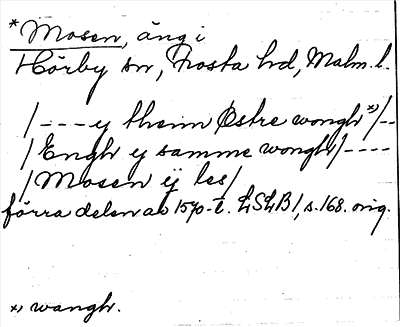 *Mosen, äng i
Hörby sn, Frosta hd, Malm. l.
/---y theim Østre wongh *)/--
/Engh y samme wongh/----
/Mosen ij les/
förra delen av 1570-t. LSLB1, s. 168. orig.
*) wangh.